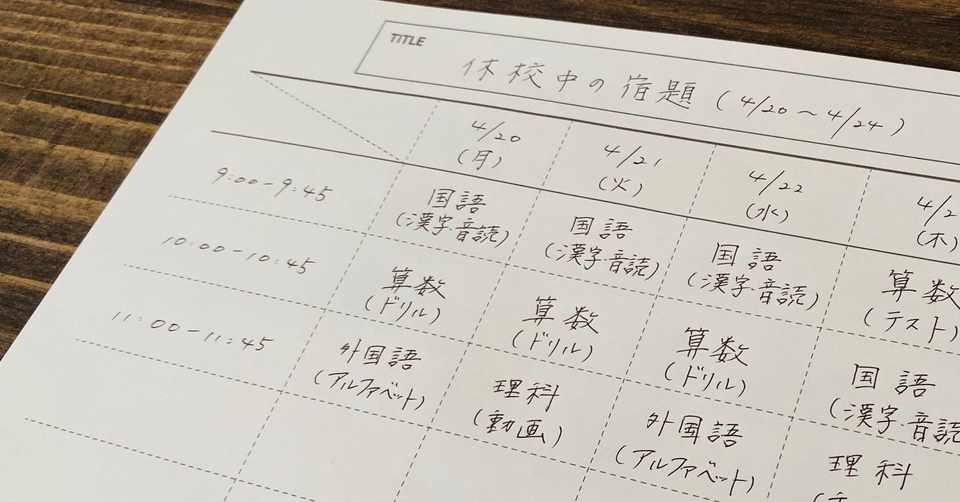 TITLE
休校中の宿題 (4/20～4/24)
4/20 4/21 4/22 4/2
(月) (火) (水) (木)
9:00-9:45 国語 国語 国語 算数
(漢字・音読) (漢字・音読) (漢字・音読) (テスト)
10:00-10:45 算数 算数 算数 国語
(ドリル) (ドリル) (ドリル) (漢字・音読
11:00-11:45 外国語 理科 外国語 理科
(アルファベット) (動画) (アルファベット)